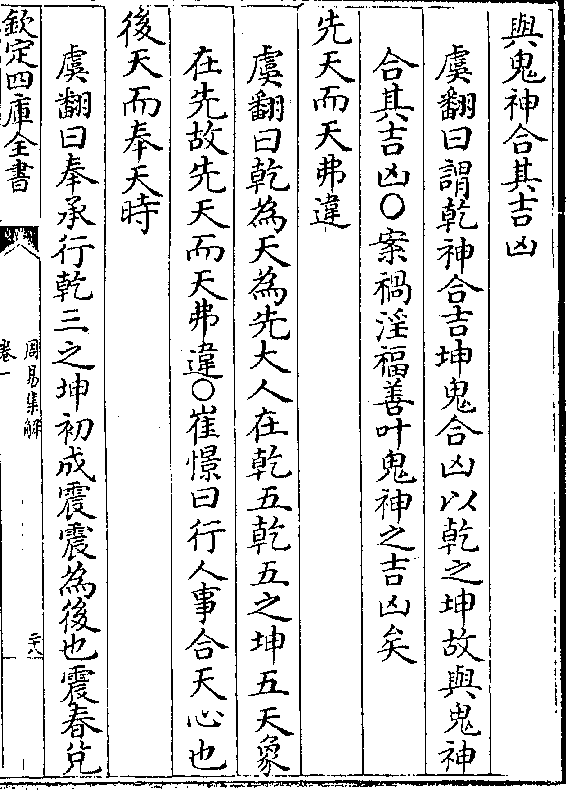 與鬼神合其吉凶
虞翻曰謂乾神合吉坤鬼合凶以乾之坤故與鬼神
合其吉凶○案禍淫福善叶鬼神之吉凶矣
先天而天弗違
虞翻曰乾為天為先大人在乾五乾五之坤五天象
在先故先天而天弗違○崔憬曰行人事合天心也
後天而奉天時
虞翻曰奉承行乾三之坤初成震震為後也震春兌
欽定四庫全書
周易集解
卷一
二十八